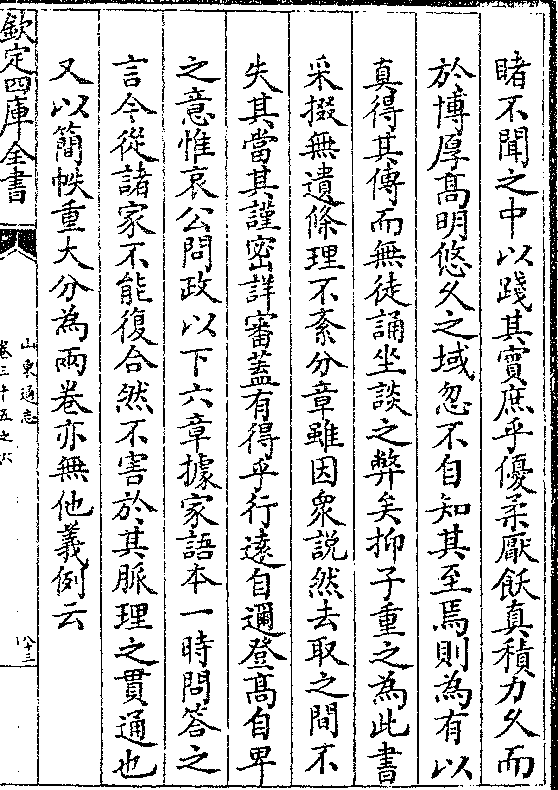 睹不聞之中以踐其實庶乎優柔厭飫真積力久而
於博厚髙明悠久之域忽不自知其至焉則為有以
真得其傳而無徒誦坐談之弊矣抑子重之為此書
采掇無遺條理不紊分章雖因衆説然去取之間不
失其當其謹密詳審葢有得乎行逺自邇登髙自卑
之意惟哀公問政以下六章據家語本一時問答之
言今從諸家不能復合然不害於其脈理之貫通也
又以簡帙重大分為兩卷亦無他義例云
欽定四庫全書
山東通志
卷三十五之六
八十三